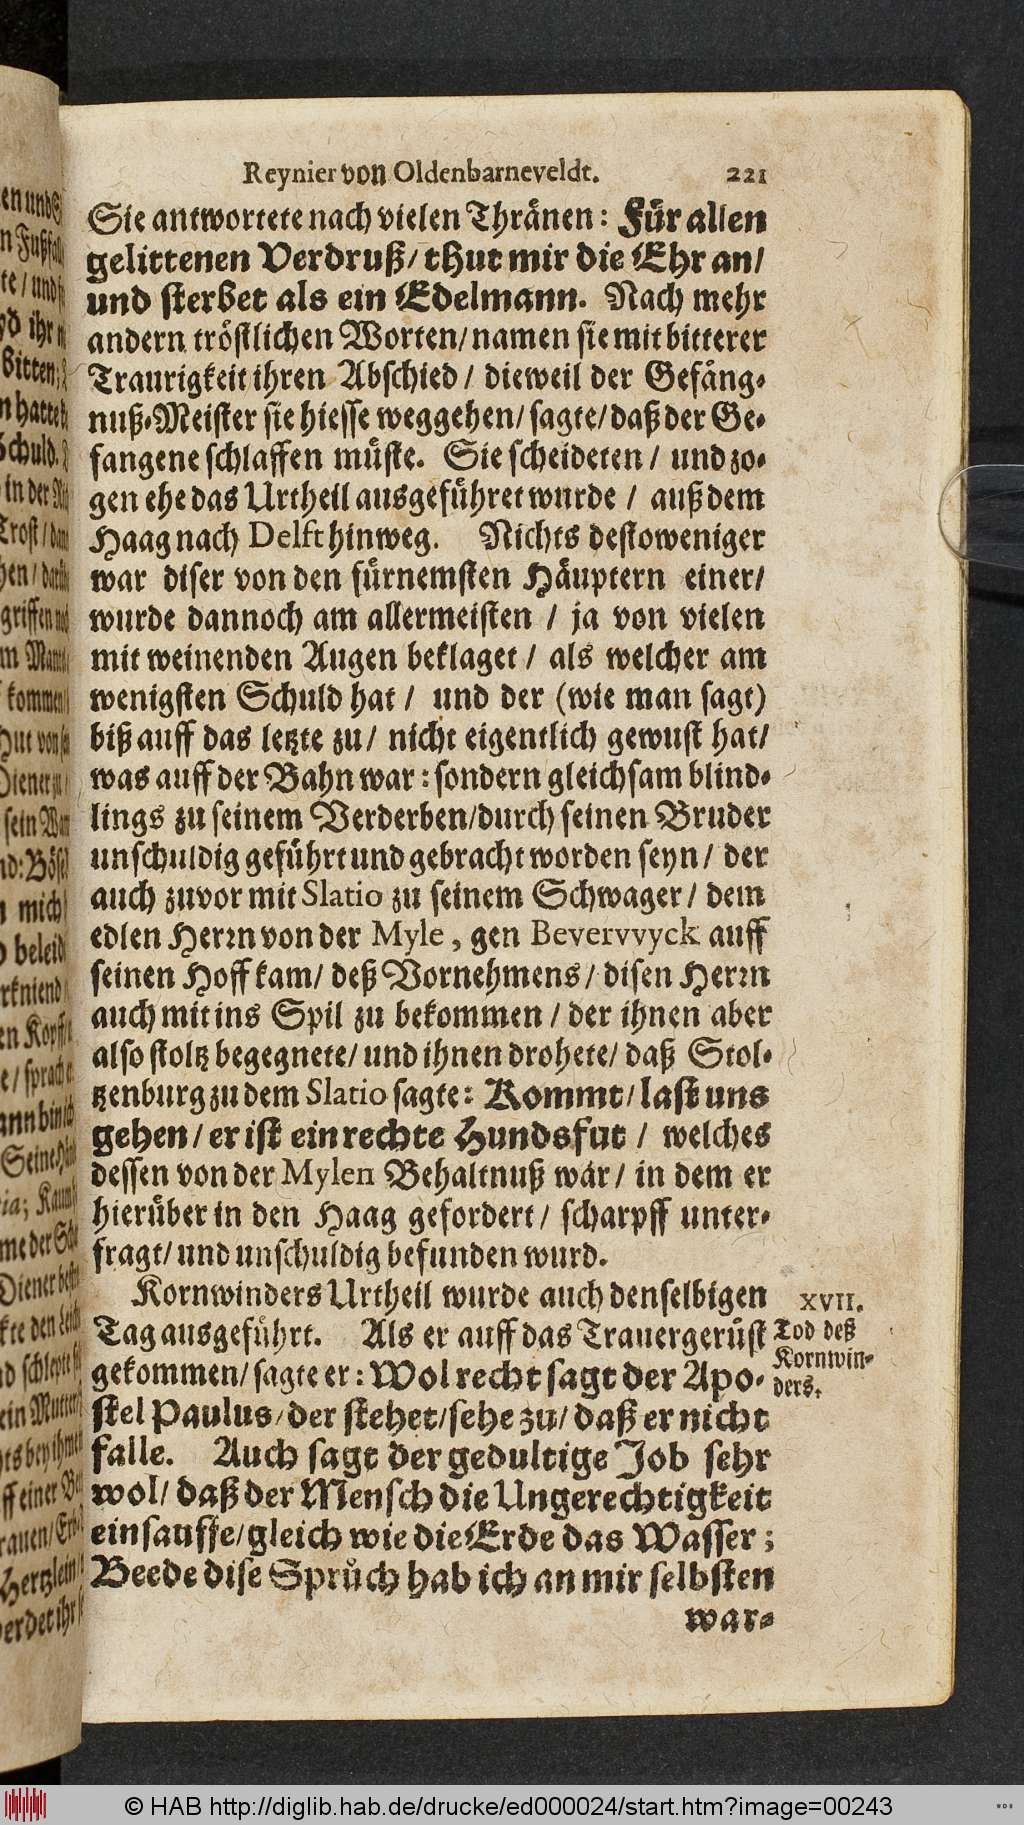 Reynier von Oldenbarneveldt. 221
Sie antwortete nach vielen Thränen: Für allen
gelittenen Verdruß/ thut mir die Ehr an/
und sterbet als ein Edelmann. Nach mehr
andern tröstlichen Worten/ namen sie mit bitterer
Traurigkeit ihren Abschied/ dieweil der Gefäng-
nuß-Meister sie hiesse weggehen/ sagte/ daß der Ge-
fangene schlaffen müste. Sie scheideten/ und zo-
gen ehe das Urtheil ausgeführet wurde/ auß dem
Haag nach Delft hinweg. Nichts destoweniger
war diser von den fürnemsten Häuptern einer/
wurde dannoch am allermeisten/ ja von vielen
mit weinenden Augen beklaget/ als welcher am
wenigsten Schuld hat/ und der (wie man sagt)
biß auff das letzte zu/ nicht eigentlich gewust hat/
was auff der Bahn war: sondern gleichsam blind-
lings zu seinem Verderben/ durch seinen Bruder
unschuldig geführt und gebracht worden seyn/ der
auch zuvor mit Slatio zu seinem Schwager/ dem
edlen Herrn von der Myle, gen Bevervvyck auff
seinen Hoff kam/ deß Vornehmens/ disen Herrn
auch mit ins Spil zu bekommen/ der ihnen aber
also stoltz begegnete/ und ihnen drohete/ daß Stol-
tzenburg zu dem Slatio sagte: Kommt/ last uns
gehen/ er ist ein rechte Hundsfut/ welches
dessen von der Mylen Behaltnuß war/ in dem er
hierüber in den Haag gefordert/ scharpff unter-
fragt/ und unschuldig befunden wurd.
Kornwinders Urtheil wurde auch denselbigen
Tag ausgeführt. Als er auff das Trauergerüst
gekommen/ sagte er: Wol recht sagt der Apo-
stel Paulus/ der stehet/ sehe zu/ daß er nicht
falle. Auch sagt der gedultige Job sehr
wol/ daß der Mensch die Ungerechtigkeit
einsauffe/ gleich wie die Erde das Wasser;
Beede dise Sprüch hab ich an mir selbsten
war-
XVII.
Tod deß
Kornwin-
ders.
© HAB http://diglib.hab.de/drucke/ed000024/start.htm?image=00243